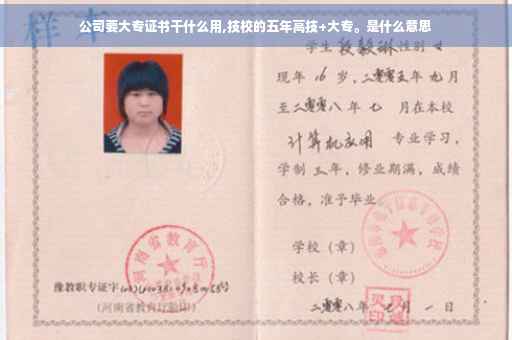 公司要大专证书干什么用,技校的五年高技+大专。是什么意思
样本
学生段毅琳性别女
现年16岁,二零零五年九月
至二零零八年七月在本校
计算机应用 专业学习,
学制三年,修业期满,成绩
合格,准予毕业。
学校(章)
河南省教育厅
校长(章)
豫教职专证字
(河南省教育厅验印)
二零零八年七月一日